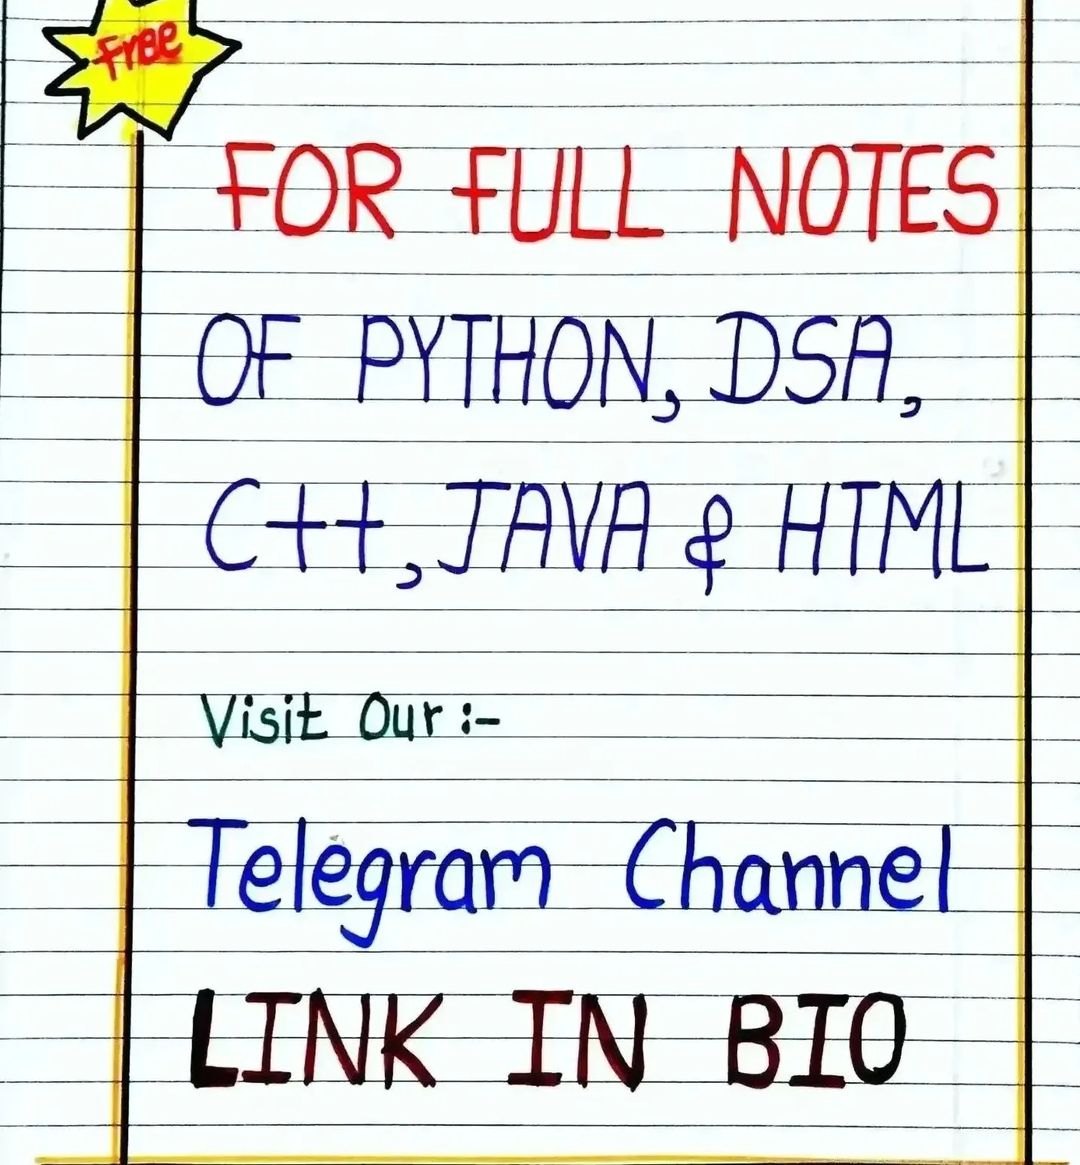 Free
FOR FULL NOTES
OF PYTHON, DSA,
C++, JAVA & HTML
Visit Our :-
Telegram Channel
LINK IN BIO